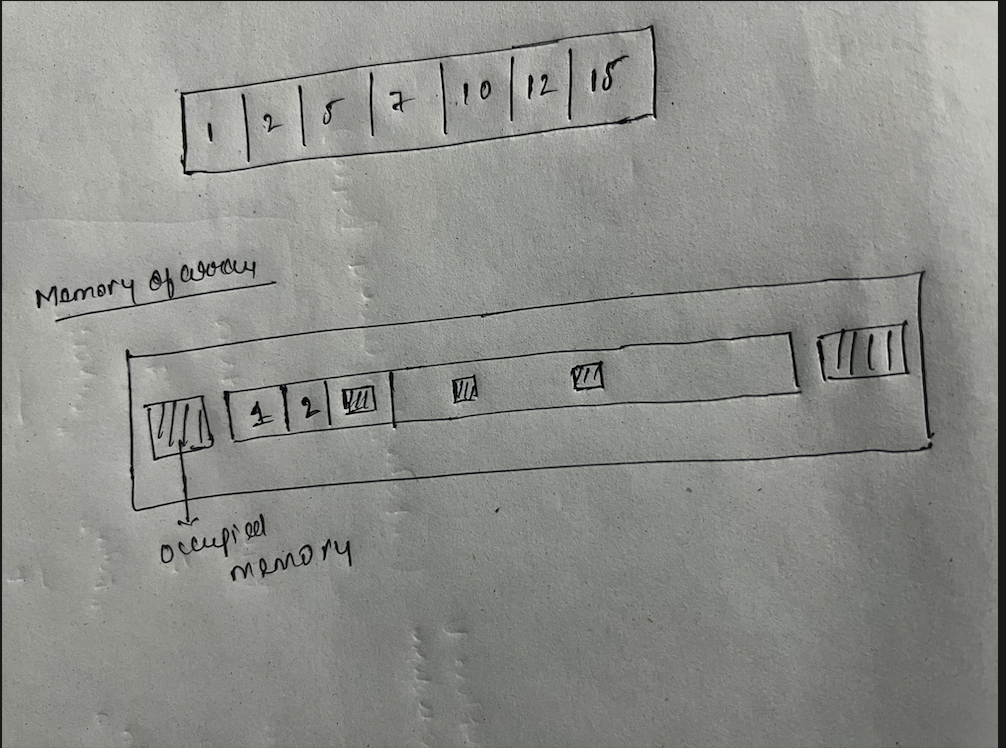 1 2 5 7 10 12 15
Memory of array
1 2
occupied
memory